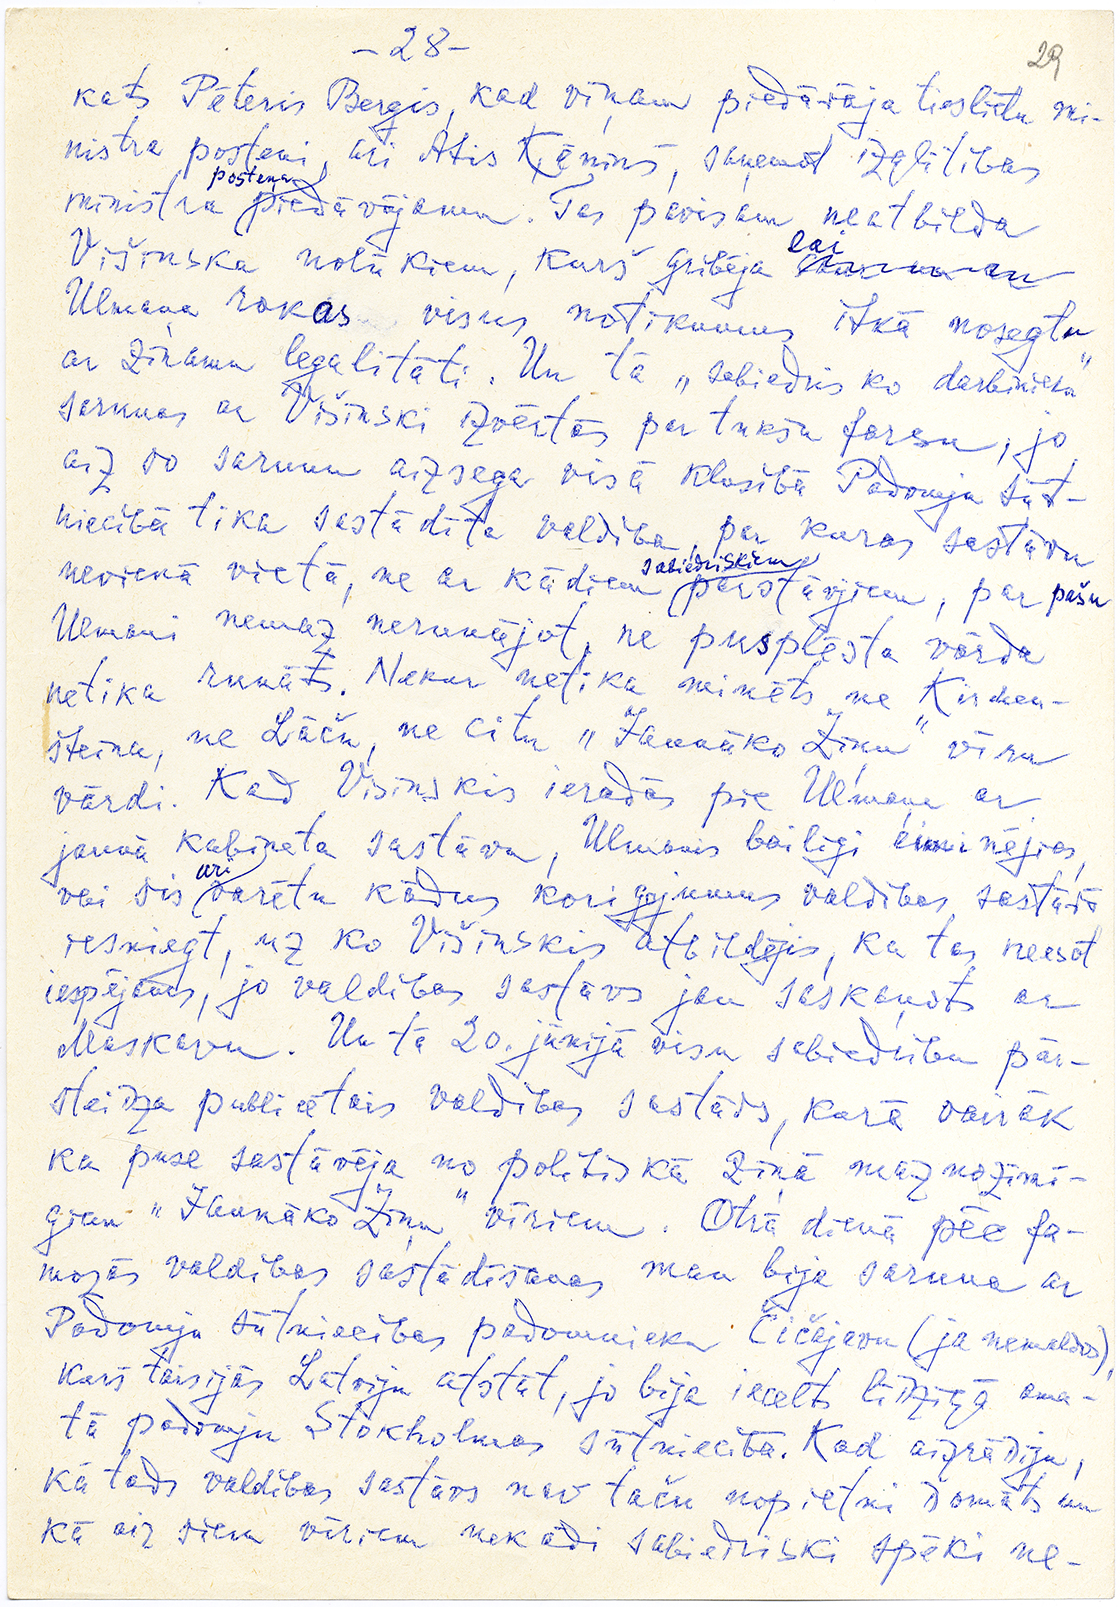 - 28 -
29
kats Pēteris Bergis, kad viņam piedāvāja tieslietu mi-
nistra posteni, arī Atis Ķēniņš, saņemot izglītības
ministra postena piedāvājumu. Tas pavisam neatbilda
Višinska nolūkiem, kurš gribēja lai
Ulmaņa rokas visus notikumus itkā nosegtu
ar zināmu legalitāti. Un tā „sabiedrisko darbinieku"
sarunas ar Višinski izvērtās par tukšu farsu, jo
aiz šo sarunu aizsega visā klusībā Padomju sūt-
niecībā tika sastādīta valdība, par kuras sastāvu
nevienā vietā, ne ar kādiem sabiedriskiem pārstāvjiem, par pašu
Ulmani nemaz nerunājot, ne pusplēsta vārda
netika runāts. Nekur netika minēts ne Kirchen-
šteina, ne Lāču, ne citu „Jaunāko Ziņu" vīru
vārdi. Kad Višinskis ieradās pie Ulmaņa ar
jaunā kabineta sastāvu, Ulmanis bailīgi iminējies,
vai šis arī varētu kādus korigējumus valdības sastāvā
iesniegt, uz ko Višinskis atbildējis, ka tas neesot
iespējams, jo valdības sastāvs jau saskaņots ar
Maskavu. Un tā 20. jūnijā visu sabiedrību pār-
steidza publicētais valdības sastāvs, kurā vairāk
ka puse sastāvēja no politiskā ziņā maznozīmī-
giem „Jaunāko Ziņu" vīriem. Otrā dienā pēc fa-
mozās valdības sastādīšanas man bija saruna ar
Padomju sūtniecības padomnieku Čičajevu (ja nemaldos),
kurš taisījās Latviju atstāt, jo bija iecelts līdzīgā ama-
tā padomju Stokholmas sūtniecībā. Kad aizrādīju,
kā tāds valdības sastāvs nav taču nopietni domāts un
kā aiz šiem vīriem nekādi sabiedriski spēki ne-